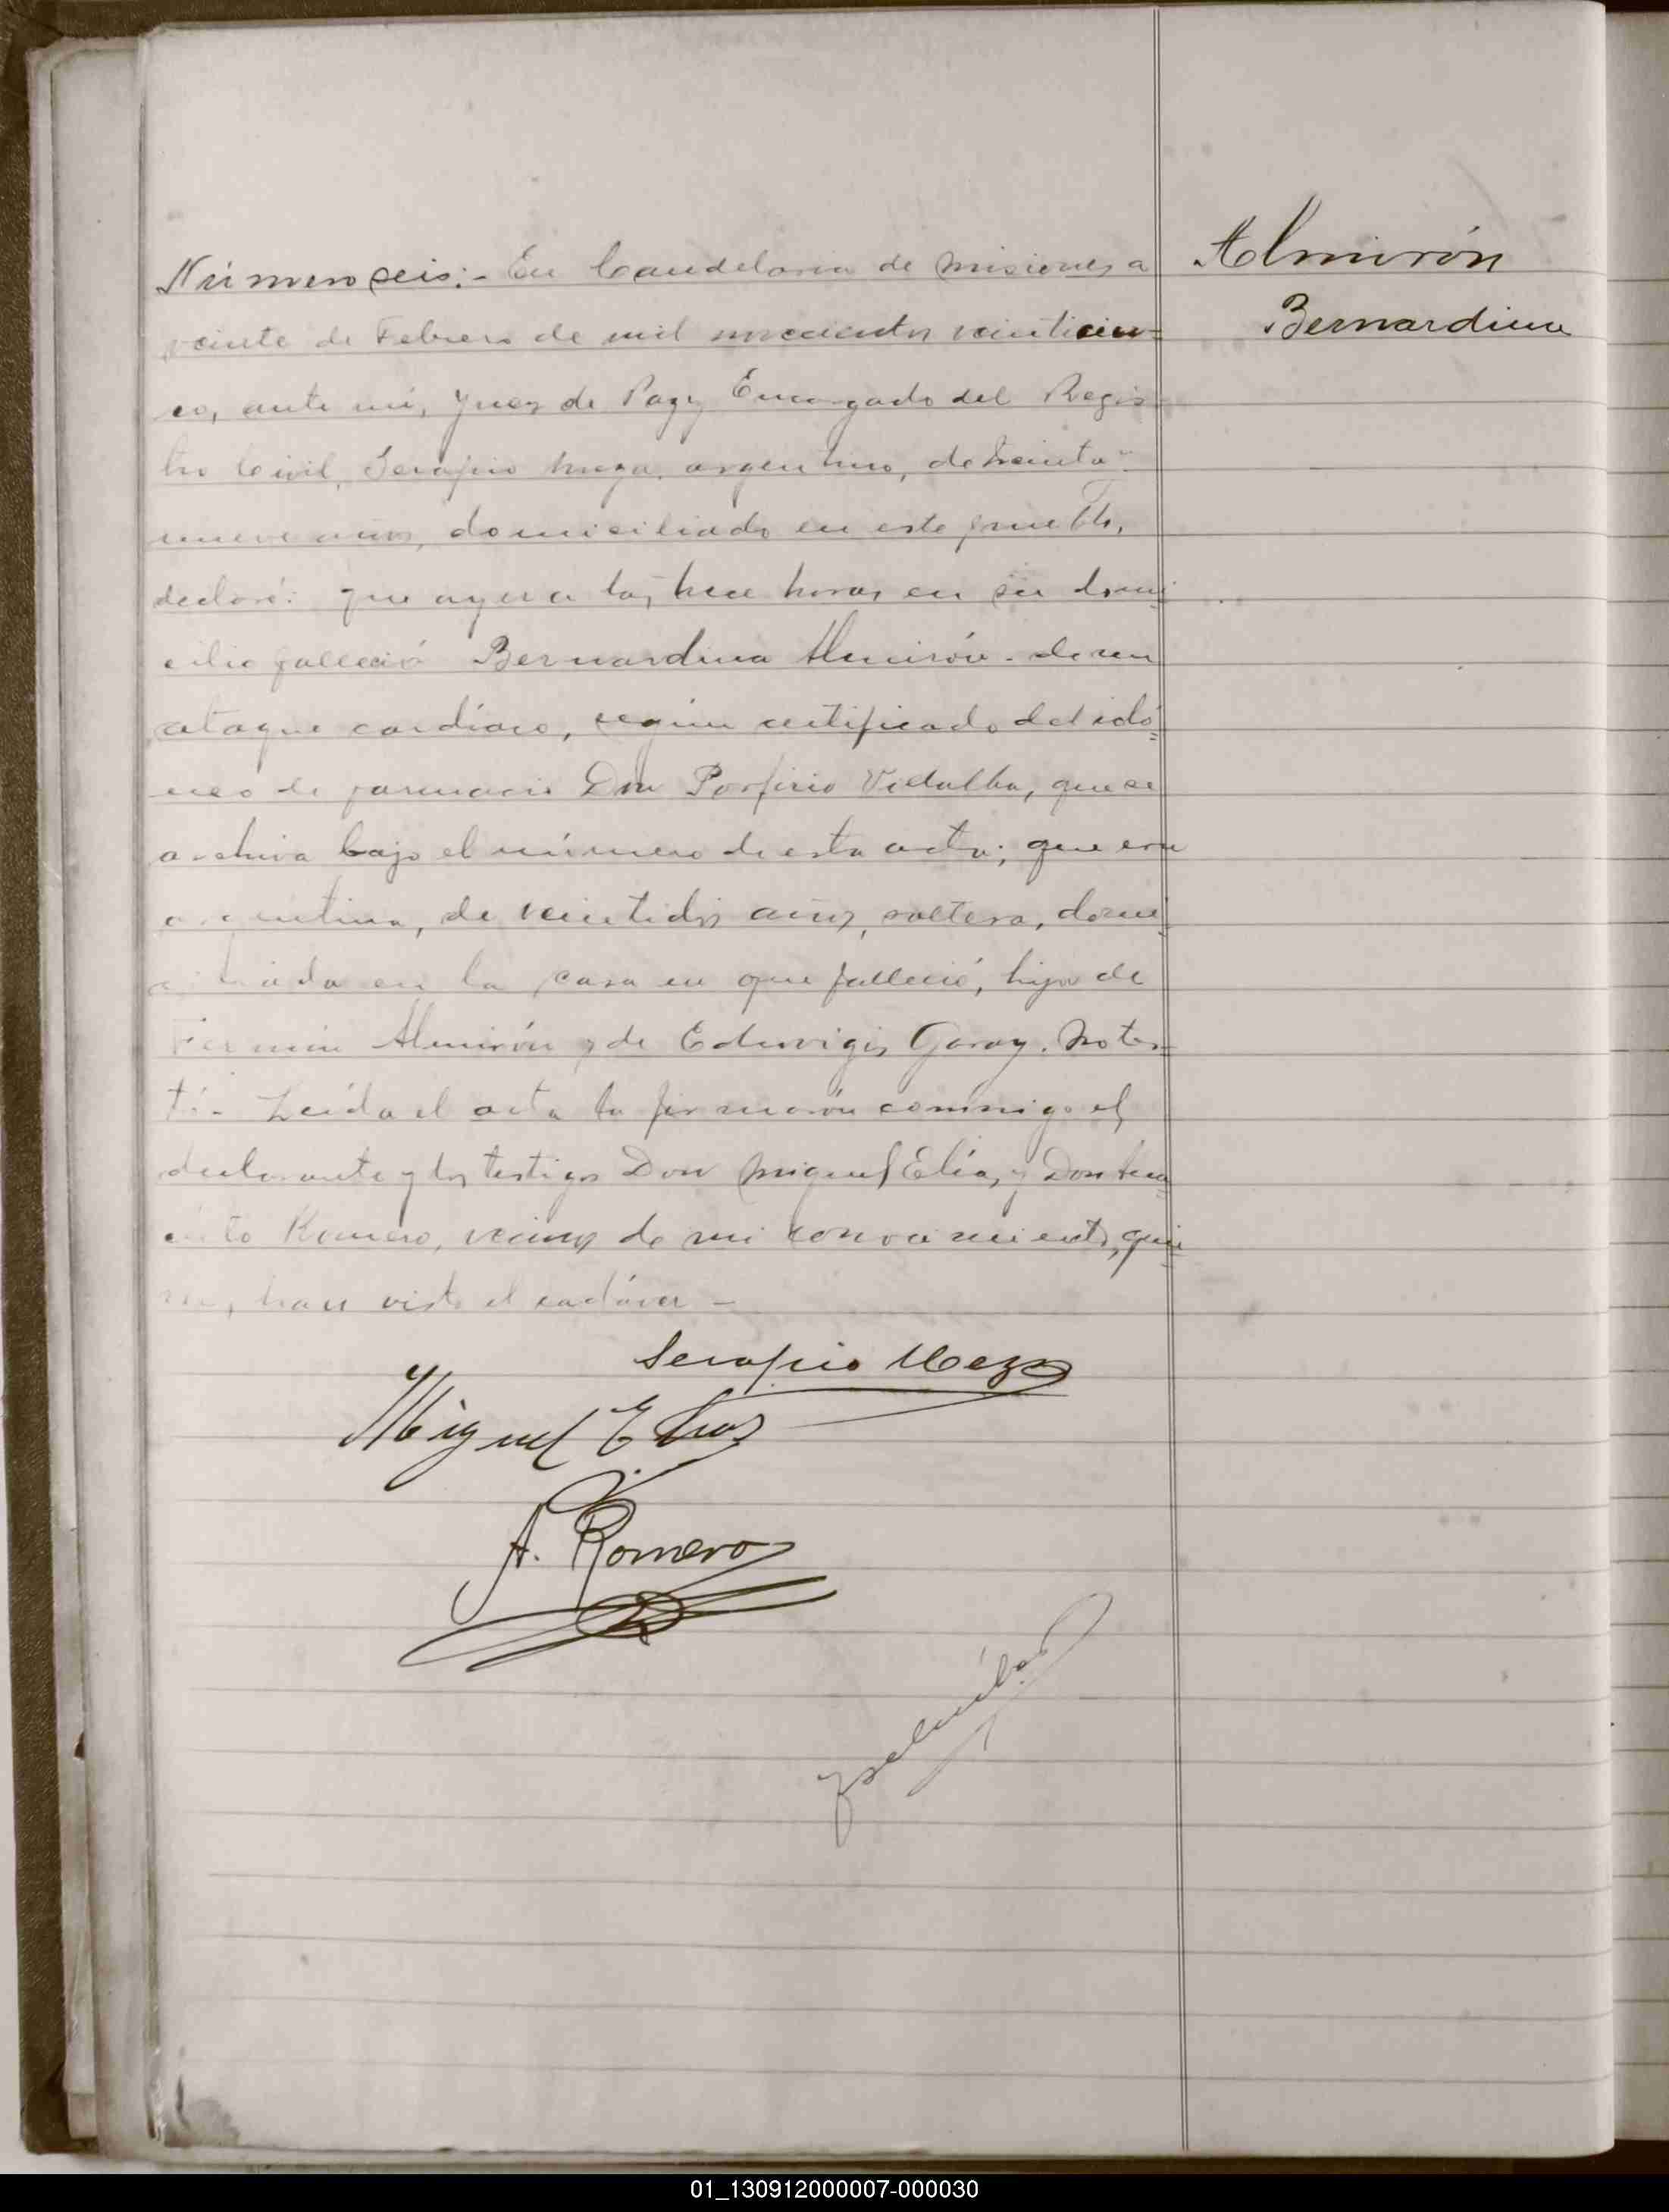 Almirón
Bernardina
Número seis:- En Candelaria de Misiones a
veinte de Febrero de mil novecientos veinticin=
co, ante mí, Juez de Paz y Encargado del Regis
tro Civil, Serapio Meza, argentino, de treinta
nueve años, domiciliado en este pueblo,
declaró: que ayer a las trece horas en su domi
cilio falleció Bernardina Almirón - de un
ataque cardíaco, según certificado del idó
neo de farmacia Don Porfirio Vidalba, que se
archiva bajo el número de esta acta; que era
argentina, de veintidos años, soltera, domi
ciliada en la casa en que falleció, hija de
Fermín Almirón y de Eduvigis Garay. No tes
tó - Leída el acta la firmaron conmigo el
declarante y los testigos Don Miguel Elías y Don
Romero, vecinos de mi conocimiento, quie
nes, han visto el cadáver -
Serapio Meza
Miguel Elias
A. Romero
01_130912000007-000030